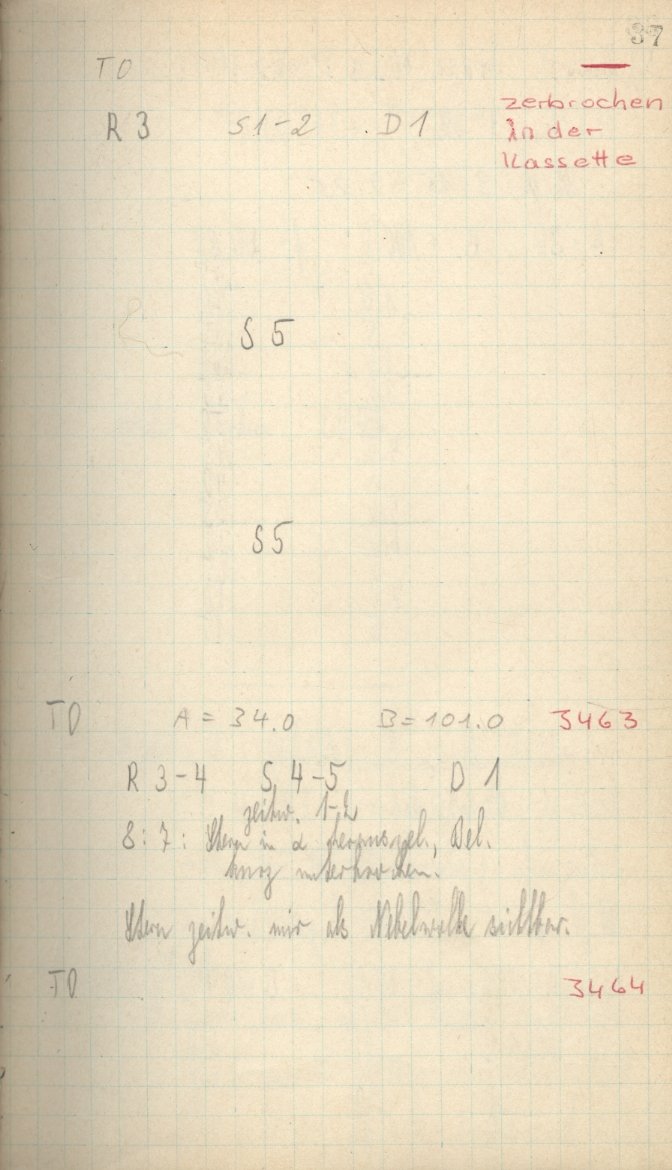 37
T0
R 3 S1-2 D 1
zerbrochen
in der
Kassette
S 5
S 5
T0 A = 34.0 B = 101.0 3463
R 3-4 S 4-5 D 1
zeitw. 1-2
8:7: Stern in α herausgeh., Bel.
kurz unterbrochen.
Stern zeitw. nur als Nebelwolke sichtbar.
T0 3464